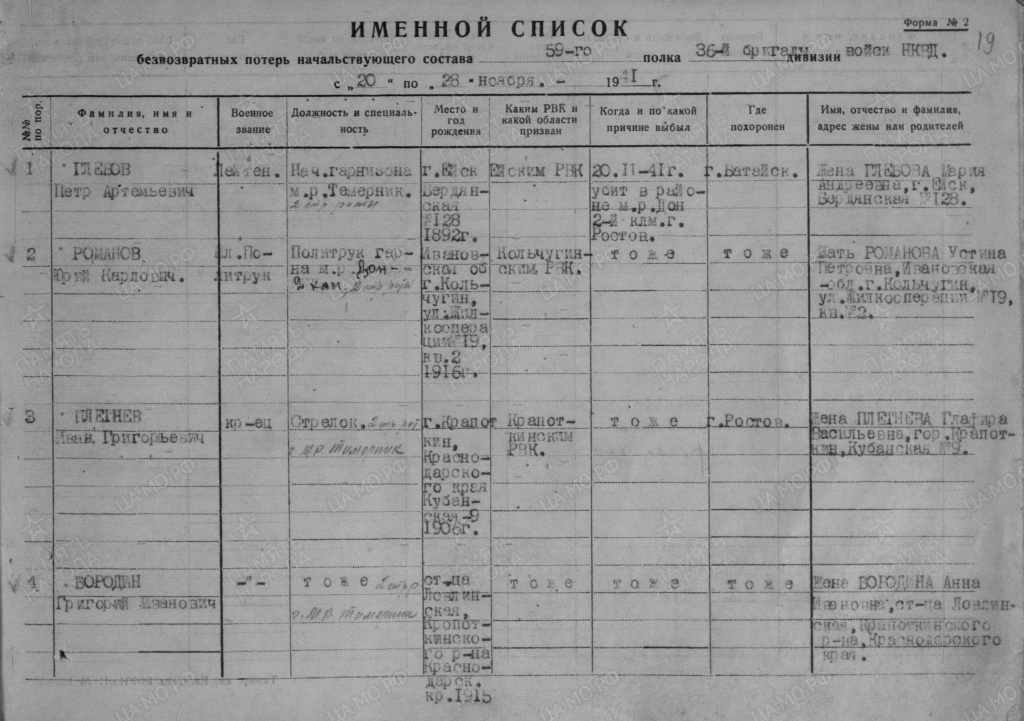 Форма № 2
19
ИМЕННОЙ СПИСОК
безвозвратных потерь начальствующего состава 59-го полка 36-й бригады дивизии войск НКВД.
с „20“ по „28“ ноября. – 1941 г.
№№ по пор.
Фамилия, имя и отчество
Военное звание
Должность и специальность
Место и год рождения
Каким РВК и какой области призван
Когда и по какой причине выбыл
Где похоронен
Имя, отчество и фамилия, адрес жены или родителей
1
ГЛЕБОВ
Петр Артемьевич
Лейтен.
Нач.гарнизона
м.р.Темерник.
2 стр роты
г.Ейск
Бердян-
ская
№128
1892г.
Ейским РВК
20.11-41г.
убит в райо-
не м.р.Дон
2-й клм.г.
Ростов.
г.Батайск.
Жена ГЛЕБОВА Мария
Андреевна,г.Ейск,
Бердянская №128.
2
РОМАНОВ
Юрий Карлович.
мл.По-
литрук
Политрук гар-
на м.р. Дон-
2 кам. 2 стр роты
Иванов-
ская об
г.Коль-
чугин,
ул.Жил-
коопера
ции №19,
кв.2
1916г.
Кольчугин-
ским РВК.
тоже
тоже
Мать РОМАНОВА Устина
Петровна,Ивановская
обл.г.Кольчугин,
ул.Жилкооперации №19,
кв.№2.
3
ПЛЕТНЕВ
Иван,Григорьевич
кр-ец
Стрелок. 2 стр рот
г. м.р. Тимерник
г.Крапот
кин,
Красно-
дарско-
го края
Кубан-
ская-9
1906г.
Крапот-
кинским
РВК.
тоже
г.Ростов.
Жена ПЛЕТНЕВА Глафира
Васильевна,гор.Крапот-
кин,Кубанская №9.
4
БОРОДИН
Григорий Иванович
-"-
тоже 2 стр р
г. м.р. Тимерник
ст-ца
Ловлин-
ская,
Кропот-
кинско-
го р-на
Красно-
дарск.
кр.1915
тоже
тоже
тоже
Жена БОРОДИНА Анна
Ивановна,ст-ца Ловлин-
ская,Крапоткинского
р-на,Краснодарского
края.